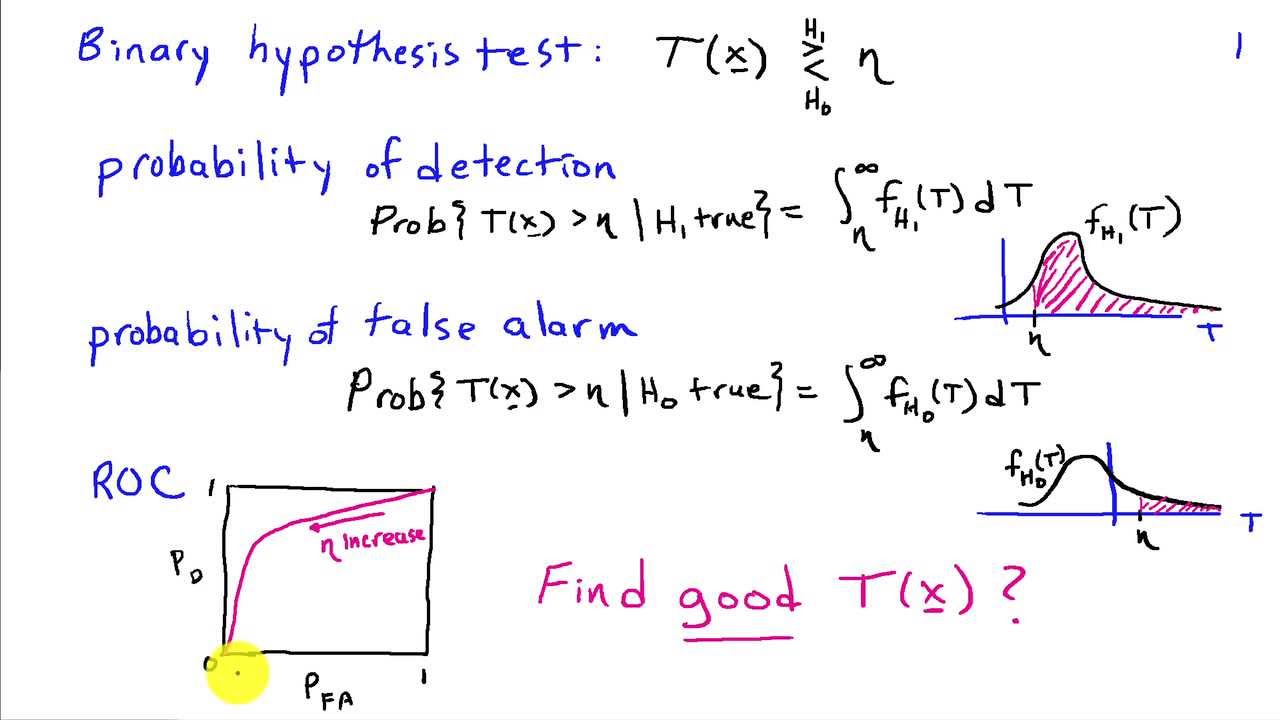 Binary hypothesis test: T(x) ≷ η
H₁
H₀
1
probability of detection
Prob{T(x) > η | H₁ true} = ∫_η^∞ f_H₁(T) dT
f_H₁(T)
η
T
probability of false alarm
Prob{T(x) > η | H₀ true} = ∫_η^∞ f_H₀(T) dT
f_H₀(T)
η
T
ROC
1
η increase
P_D
0
1
P_FA
Find good T(x)?